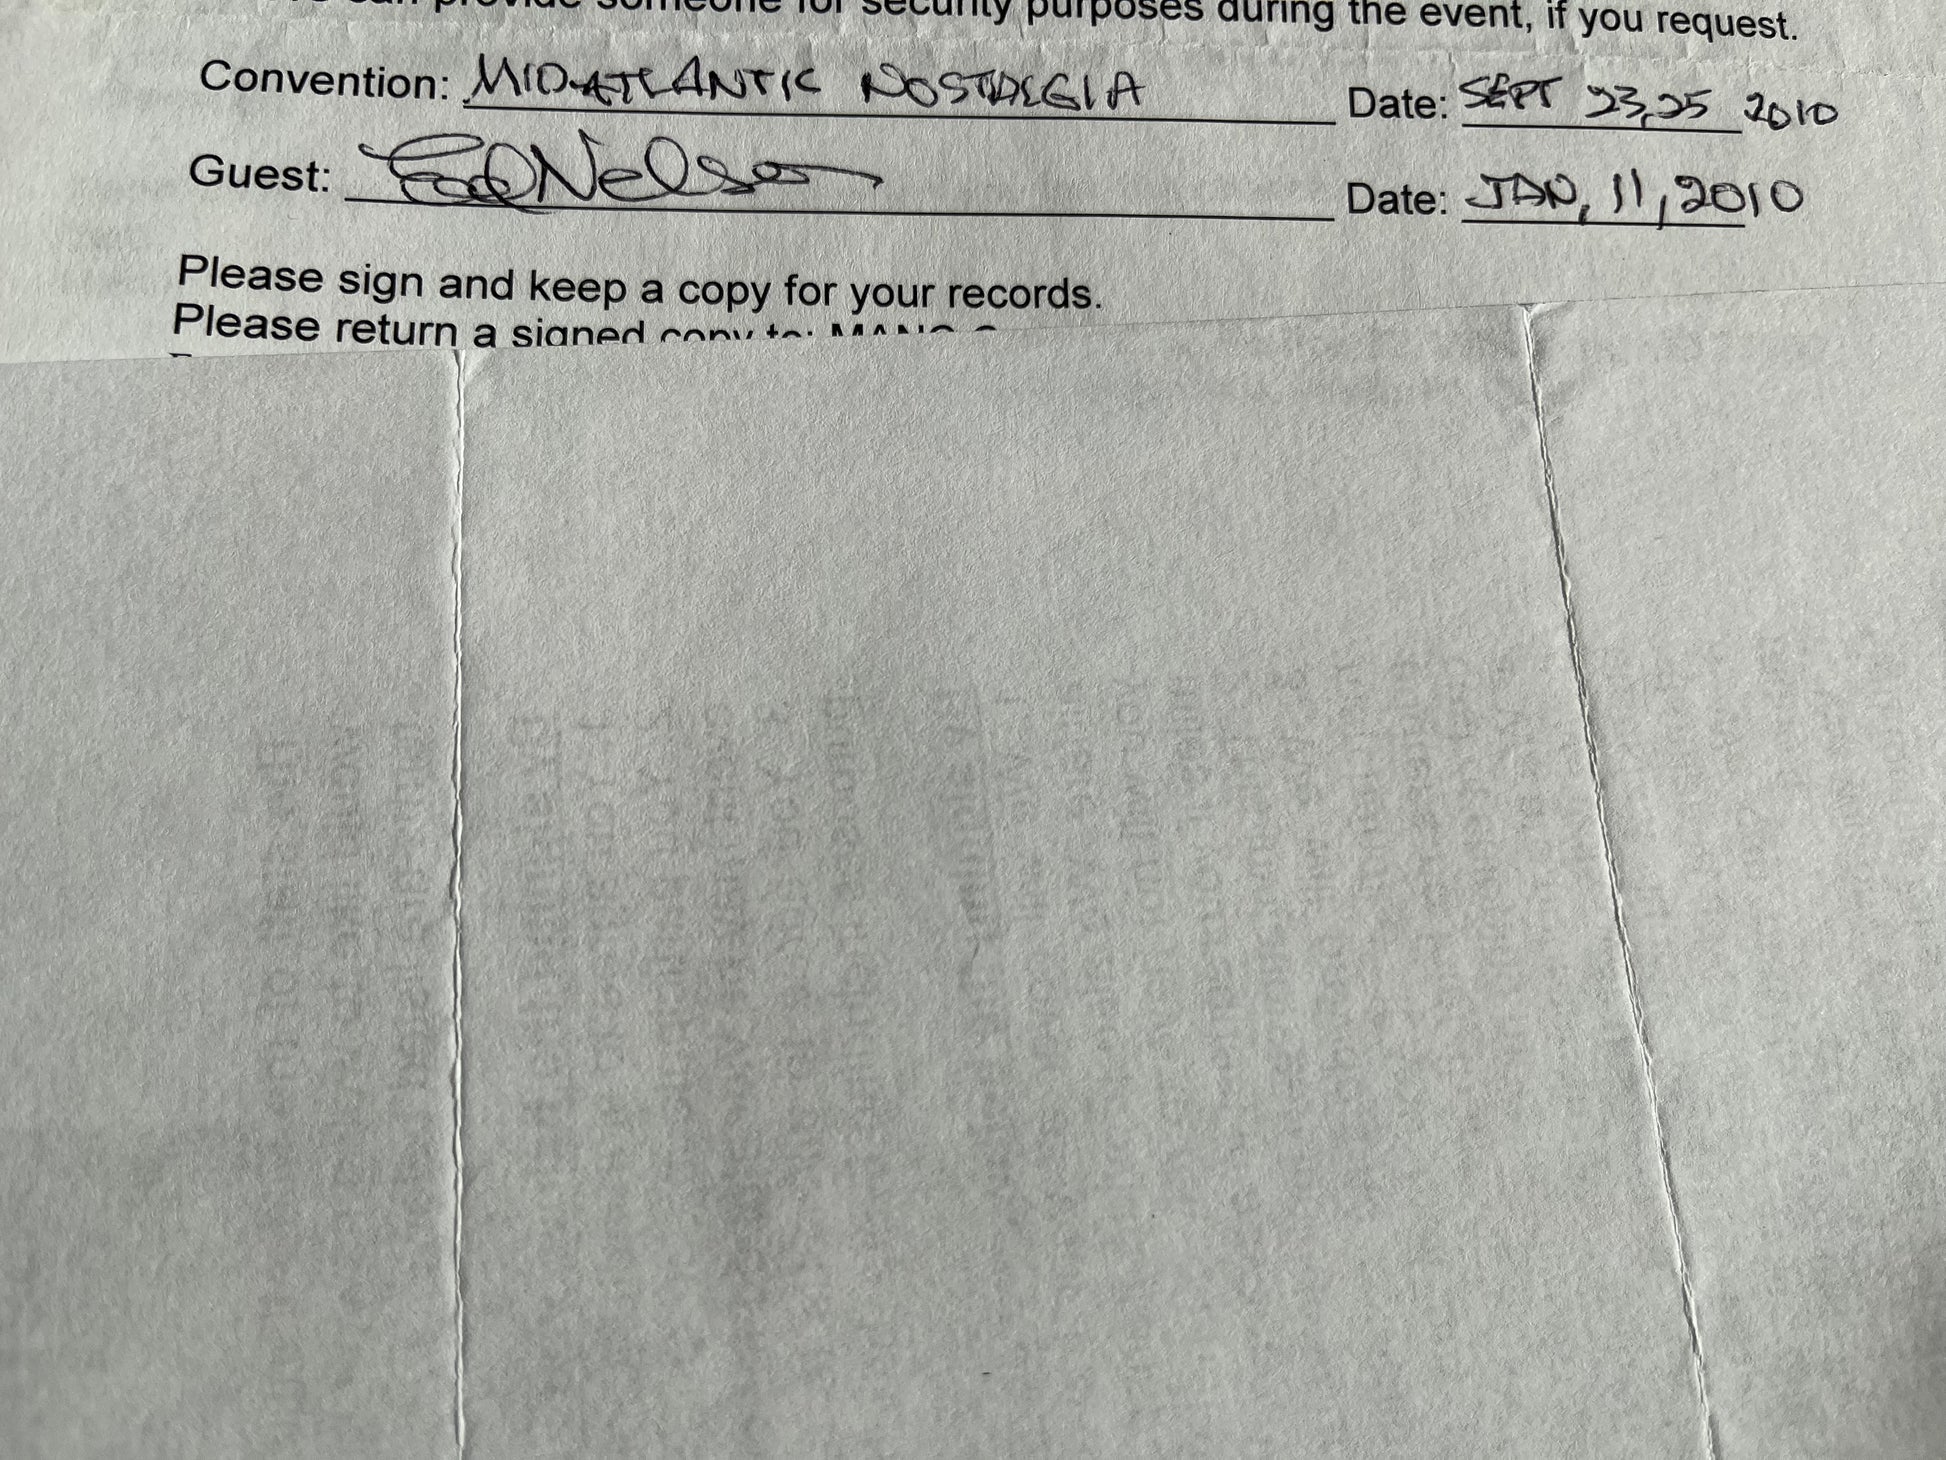 can provide someone for security purposes during the event, if you request.
Convention: MID-ATLANTIC NOSTALGIA Date: SEPT 23,25 2010
Guest: Ed Nelson Date: JAN, 11, 2010
Please sign and keep a copy for your records.
Please return a signed copy to: